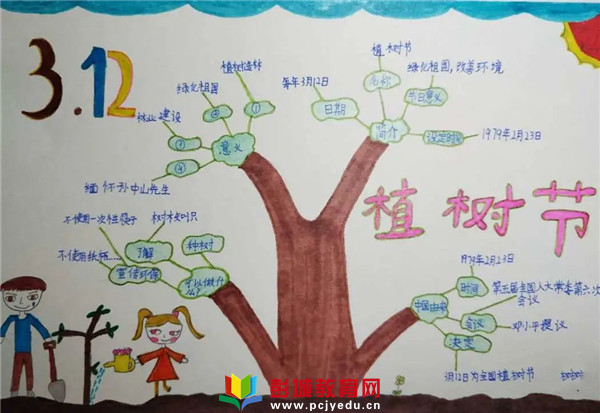 3.12
植树节
简介
名称
植树节
日期
每年3月12日
节日意义
绿化祖国,改善环境
设定时间
1979年2月23日
意义
①
植树造林
②
绿化祖国
③
林业建设
④
缅怀孙中山先生
可以做什么?
种树
了解
树木知识
宣传环保
不使用一次性筷子
不使用纸杯……
中国由来
时间
1979年2月23日
会议
第五届全国人大常委第六次会议
邓小平提议
决定
3月12日为全国植树节
彭城教育网
www.pcjyedu.cn